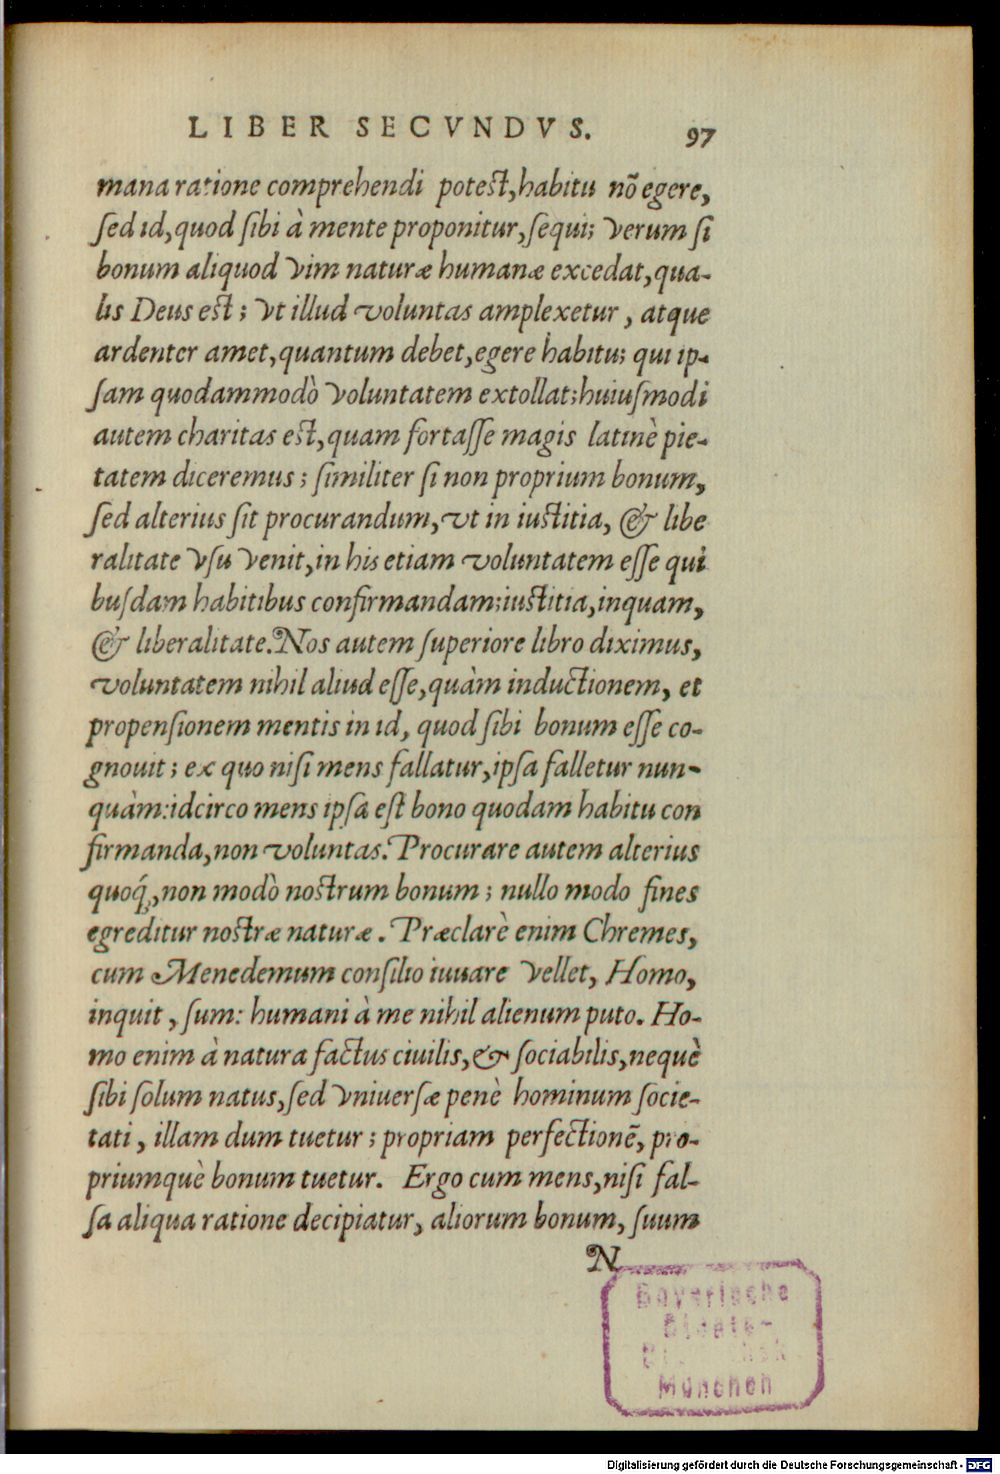 LIBER SECVNDVS. 97
mana ratione comprehendi potest, habitu nõ egere,
sed id, quod sibi à mente proponitur, sequi; verum si
bonum aliquod vim naturæ humanæ excedat, qua-
lis Deus est; vt illud voluntas amplexetur, atque
ardenter amet, quantum debet, egere habitu; qui ip-
sam quodammodò voluntatem extollat; huiusmodi
autem charitas est, quam fortasse magis latinè pie-
tatem diceremus; similiter si non proprium bonum,
sed alterius sit procurandum, vt in iustitia, & libe
ralitate vsu venit, in his etiam voluntatem esse qui
busdam habitibus confirmandam; iustitia, inquam,
& liberalitate. Nos autem superiore libro diximus,
voluntatem nihil aliud esse, quàm inductionem, et
propensionem mentis in id, quod sibi bonum esse co-
gnouit; ex quo nisi mens fallatur, ipsa falletur nun-
quàm: idcirco mens ipsa est bono quodam habitu con
firmanda, non voluntas. Procurare autem alterius
quoq́;, non modò nostrum bonum; nullo modo fines
egreditur nostræ naturæ. Præclarè enim Chremes,
cum Menedemum consilio iuuare vellet, Homo,
inquit, sum: humani à me nihil alienum puto. Ho-
mo enim à natura factus ciuilis, & sociabilis, nequè
sibi solum natus, sed vniuersæ penè hominum socie-
tati, illam dum tuetur; propriam perfectionẽ, pro-
priumquè bonum tuetur. Ergo cum mens, nisi fal-
sa aliqua ratione decipiatur, aliorum bonum, suum
N
Bayerische
Staats-
München
Digitalisierung gefördert durch die Deutsche Forschungsgemeinschaft - DFG